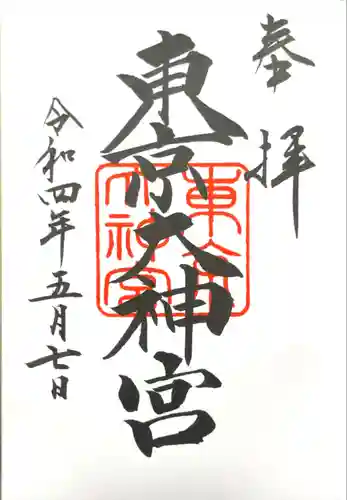 奉拝
東京大神宮
令和四年五月七日
東京大神宮